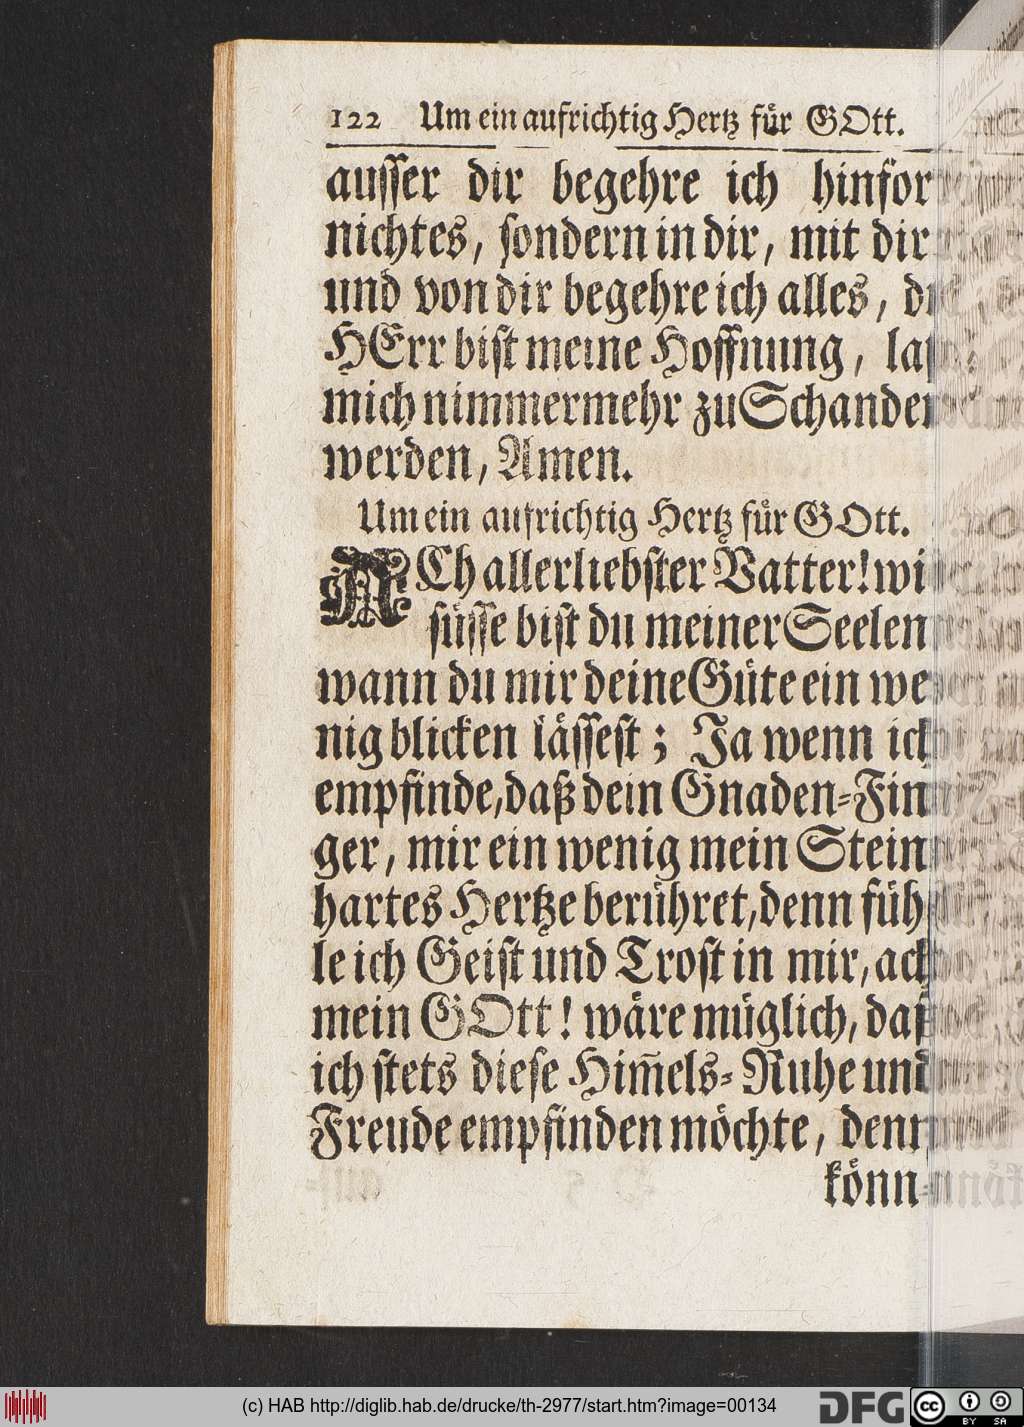 122 Um ein aufrichtig Hertz für GOtt.
ausser dir begehre ich hinfor
nichtes, sondern in dir, mit dir
und von dir begehre ich alles,
HErr bist meine Hoffnung,
mich nimmermehr zu Schanden
werden, Amen.
Um ein aufrichtig Hertz für GOtt.
ACh allerliebster Vatter! wi
süsse bist du meiner Seelen
wann du mir deine Güte ein we
nig blicken lässest; Ja wenn ich
empfinde, daß dein Gnaden-Fin
ger, mir ein wenig mein Stein
hartes Hertze berühret, denn füh
le ich Geist und Trost in mir, ach
mein GOtt! wäre müglich, daß
ich stets diese Him̃els-Ruhe und
Freude empfinden möchte, denn
könn-
(c) HAB http://diglib.hab.de/drucke/th-2977/start.htm?image=00134
DFG
cc BY SA